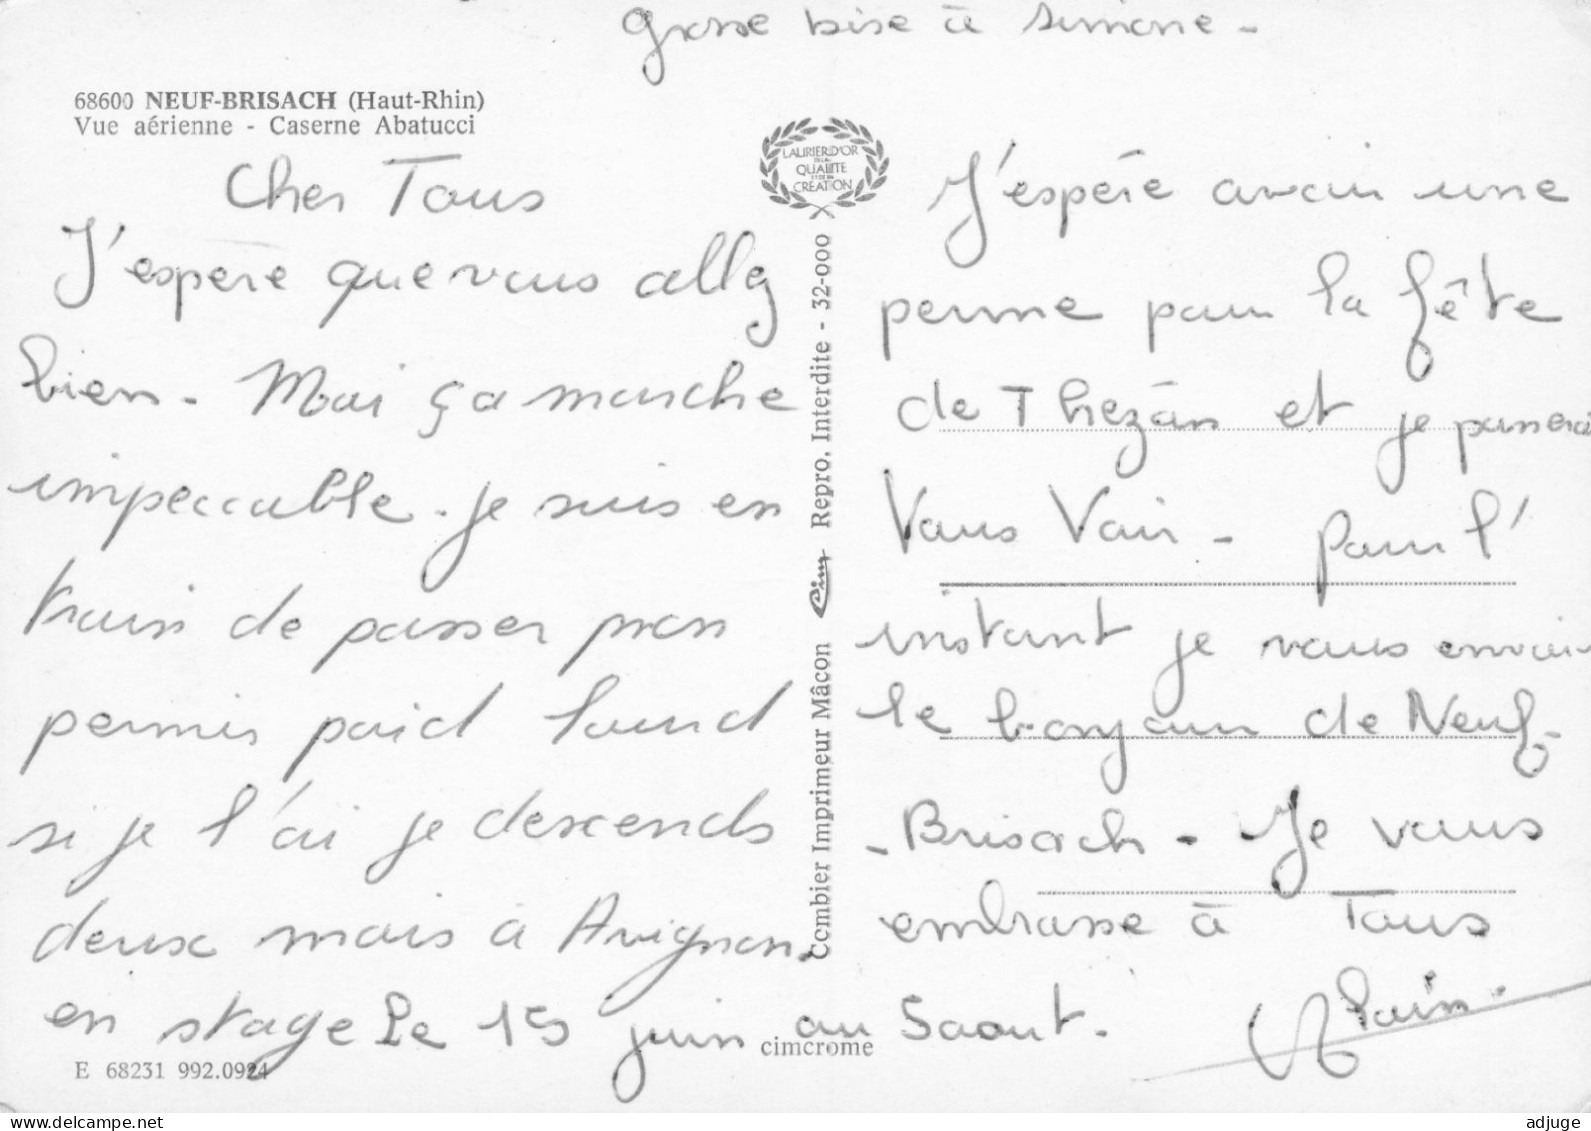 Grosse bise à Simone -
68600 NEUF-BRISACH (Haut-Rhin)
Vue aérienne - Caserne Abatucci
Cher Tous
J'espère que vous allez
bien - Moi ça marche
impeccable. je suis en
train de passer mon
permis poid lourd
si je l'ai je descends
deux mois à Avignon.
en stage Le 15 juin au 5 aout.
E 68231 992.0924
cimcrome
LAURIER D'OR
DE LA
QUALITE
ET DE LA
CREATION
Combier Imprimeur Mâcon Cim Repro. Interdite - 32-000
J'espère avoir une
perme pour la fête
de Thezan et je passerai
Vous Voir - pour l'
instant je vous envoie
le bonjour de Neuf-
- Brisach - Je vous
embrasse à Tous
Alain.
www.delcampe.net
adjuge